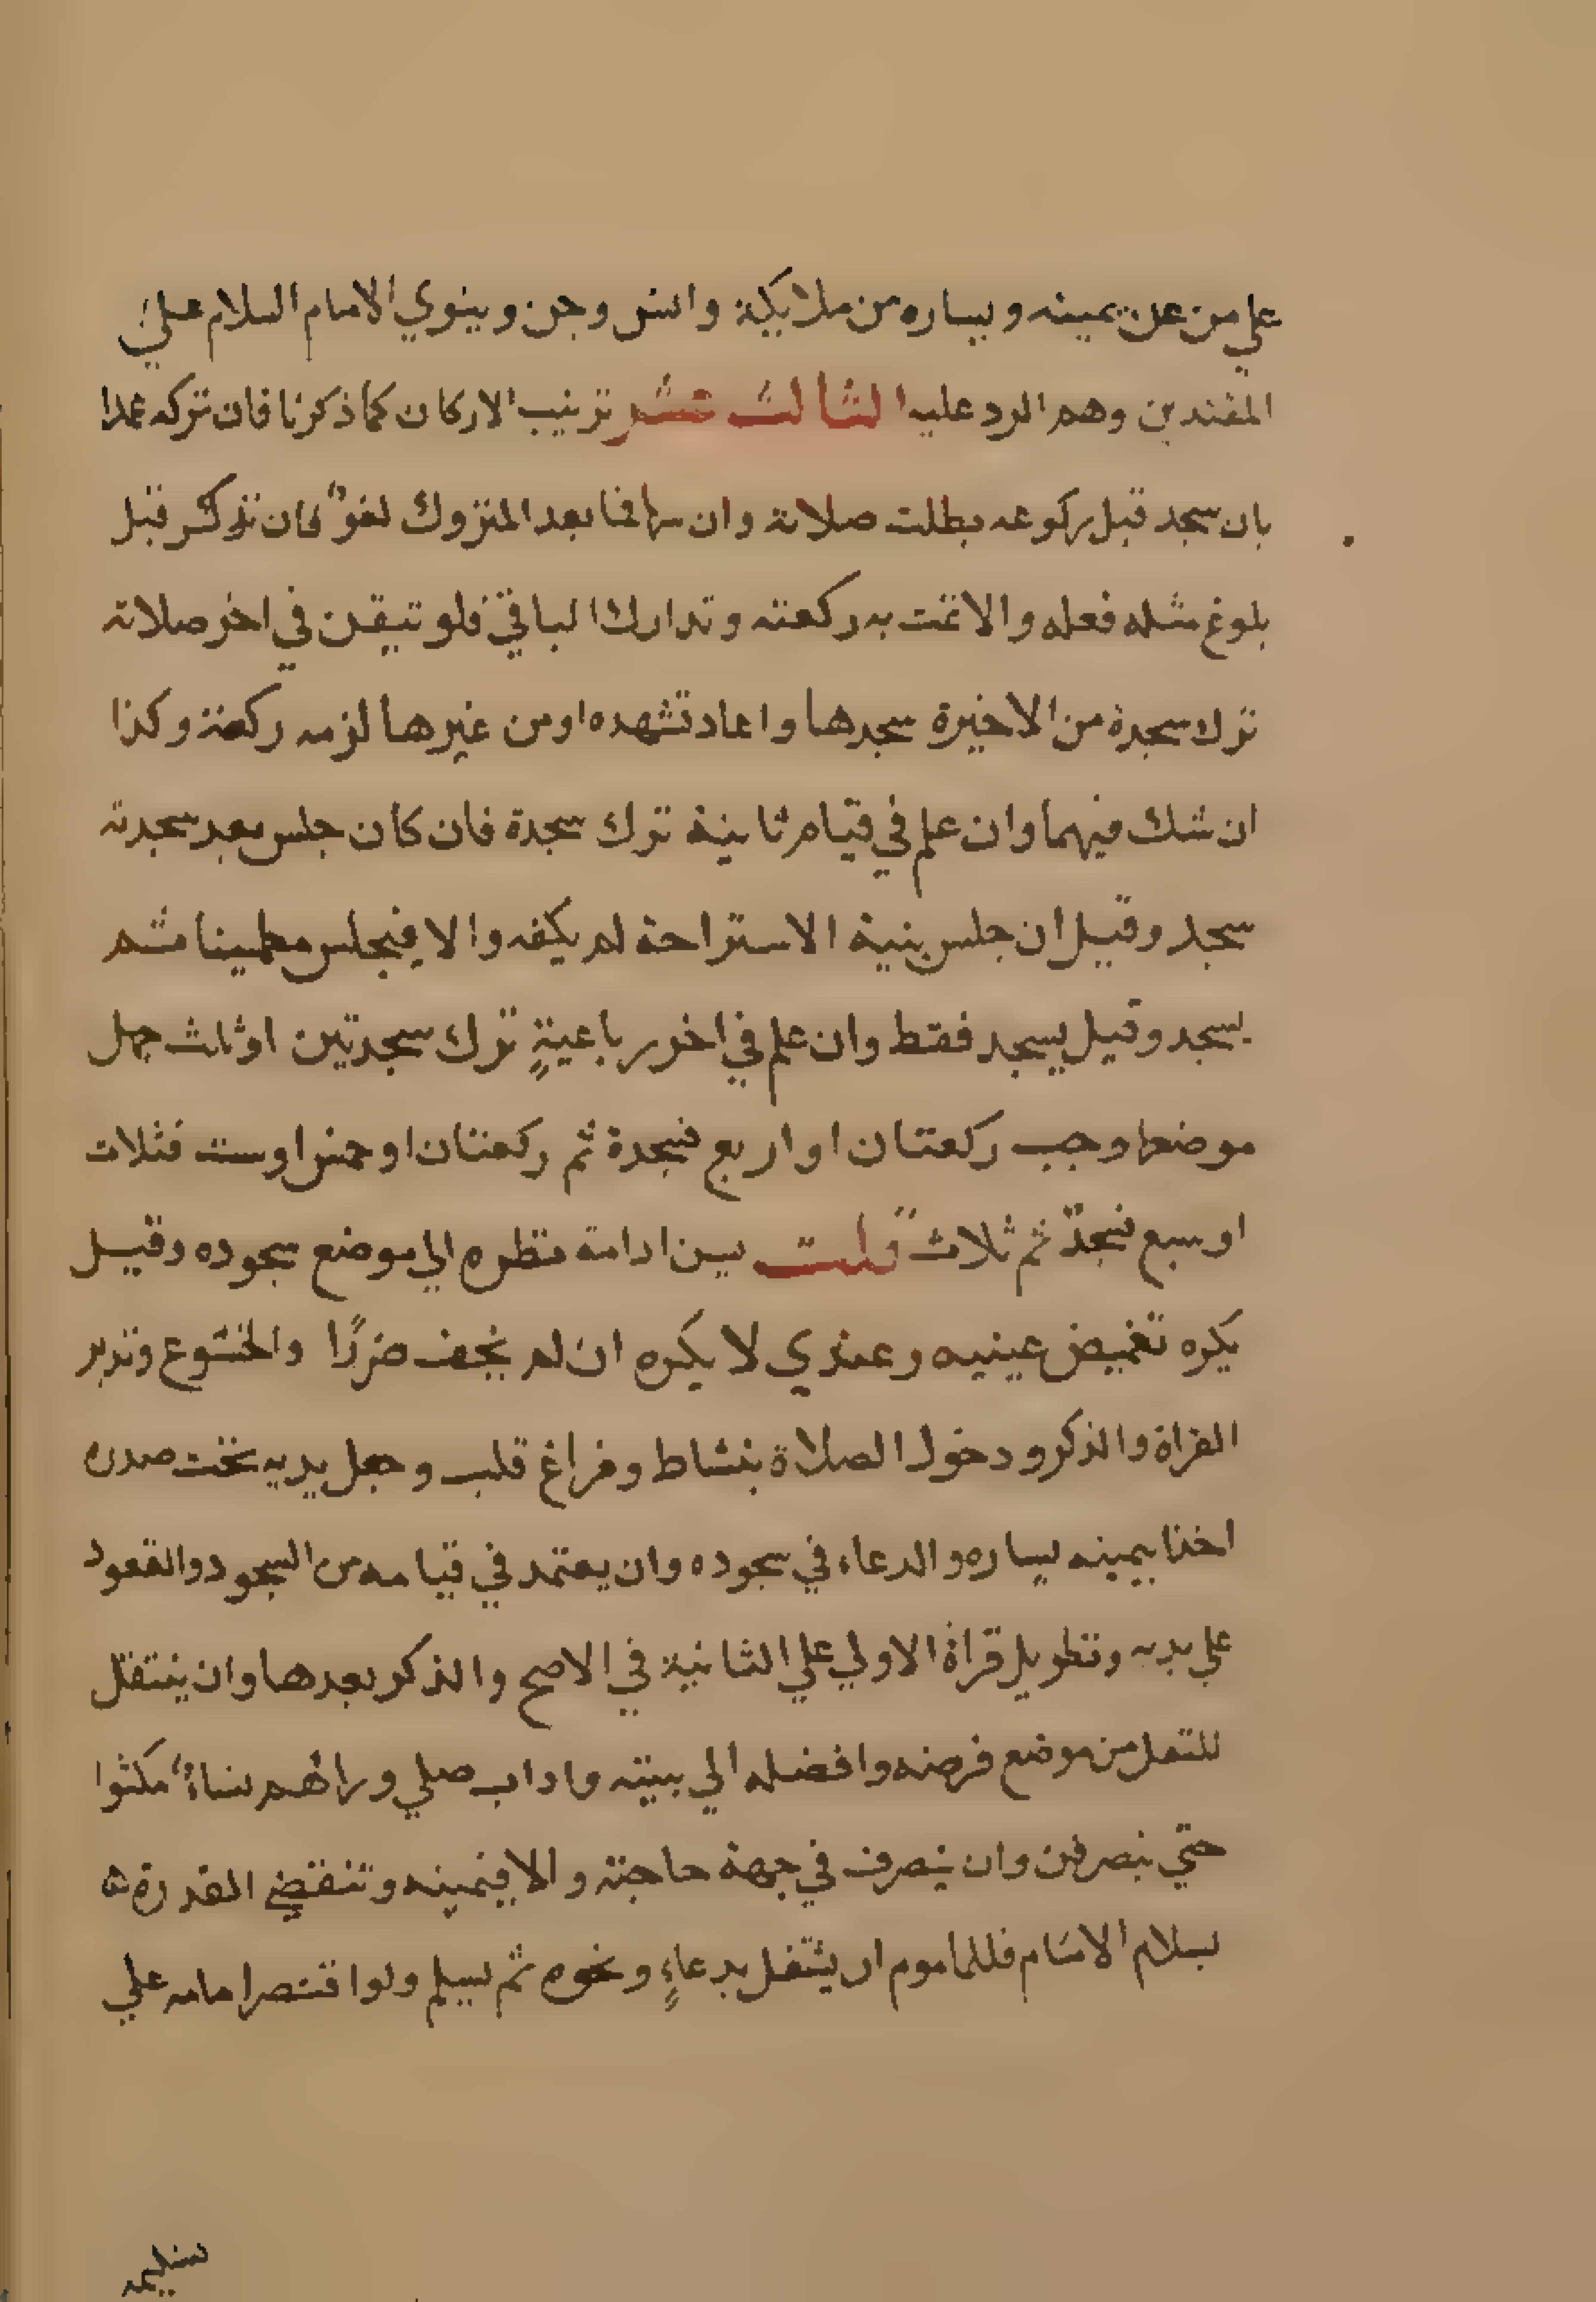 علي من عن يمينه ويساره من ملايكة وانس وجن وينوي الامام السلام علي
المقتدين وهم الرد عليه الثالث عشر ترتيب الاركان كما ذكرنا فان تركه عمدا
بان سجد قبل ركوعه بطلت صلاته وان سها فما بعد المتروك لغو فان تذكر قبل
بلوغ مثله فعله والا تمت به ركعته وتدارك الباقي فلو تيقن في اخر صلاته
ترك سجدة من الاخيرة سجدها واعاد تشهده او من غيرها لزمه ركعة وكذا
ان شك فيهما وان علم في قيام ثانية ترك سجدة فان كان جلس بعد سجدته
سجد وقيل ان جلس بنية الاستراحة لم يكفه والا فيجلس مطمينا ثم
يسجد وقيل يسجد فقط وان علم في اخر رباعيةٍ ترك سجدتين او ثلث جهل
موضعها وجب ركعتان او اربع فسجدة ثم ركعتان او خمس او ست فثلاث
او سبع فسجدة ثم ثلاث قلت يسن ادامة نظره الي موضع سجوده وقيل
يكره تغميض عينيه وعندي لا يكره ان لم يخف ضررًا والخشوع وتدبر
القراة والذكر ودخول الصلاة بنشاط وفراغ قلب وجعل يديه تحت صدره
اخذا بيمينه يساره والدعاء في سجوده وان يعتمد في قيامه من السجود والقعود
علي يديه وتطويل قراة الاولي علي الثانية في الاصح والذكر بعدها وان ينتقل
للنفل من موضع فرضه وافضله الي بيته واذا صلي وراهم نساء مكثوا
حتي ينصرفن وان ينصرف في جهة حاجته والا فيمينه وتنقضي القدوة
بسلام الامام فللماموم ان يشتغل بدعاءٍ ونحوه ثم يسلم ولو اقتصر امامه علي
تسليمة